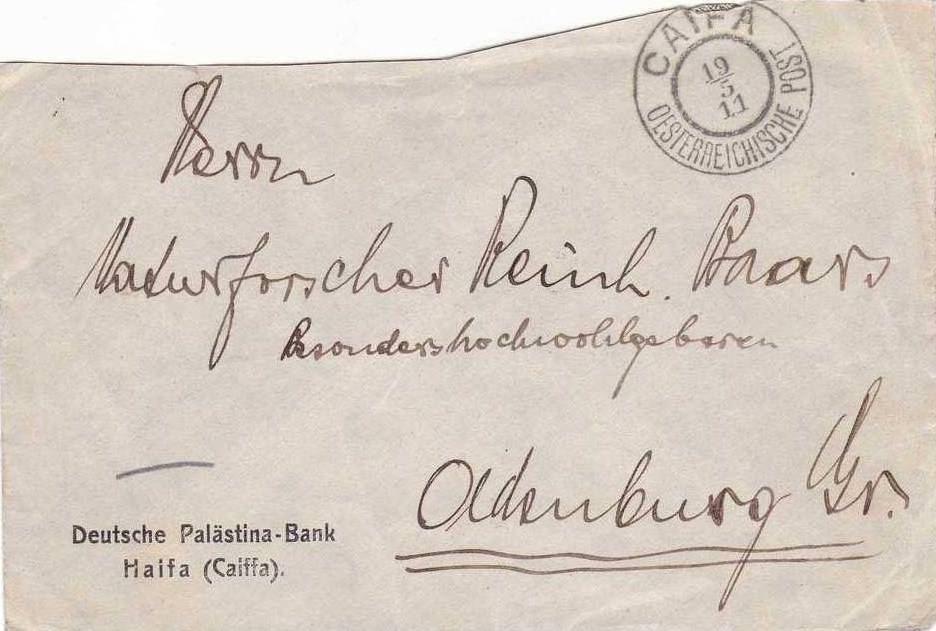 CAIFA
19/5
11
OESTERREICHISCHE POST
Herrn
Naturforscher Reinh. Baars
Besondershochwohlgeboren
Oldenburg Gr.
Deutsche Palästina-Bank
Haifa (Caiffa).